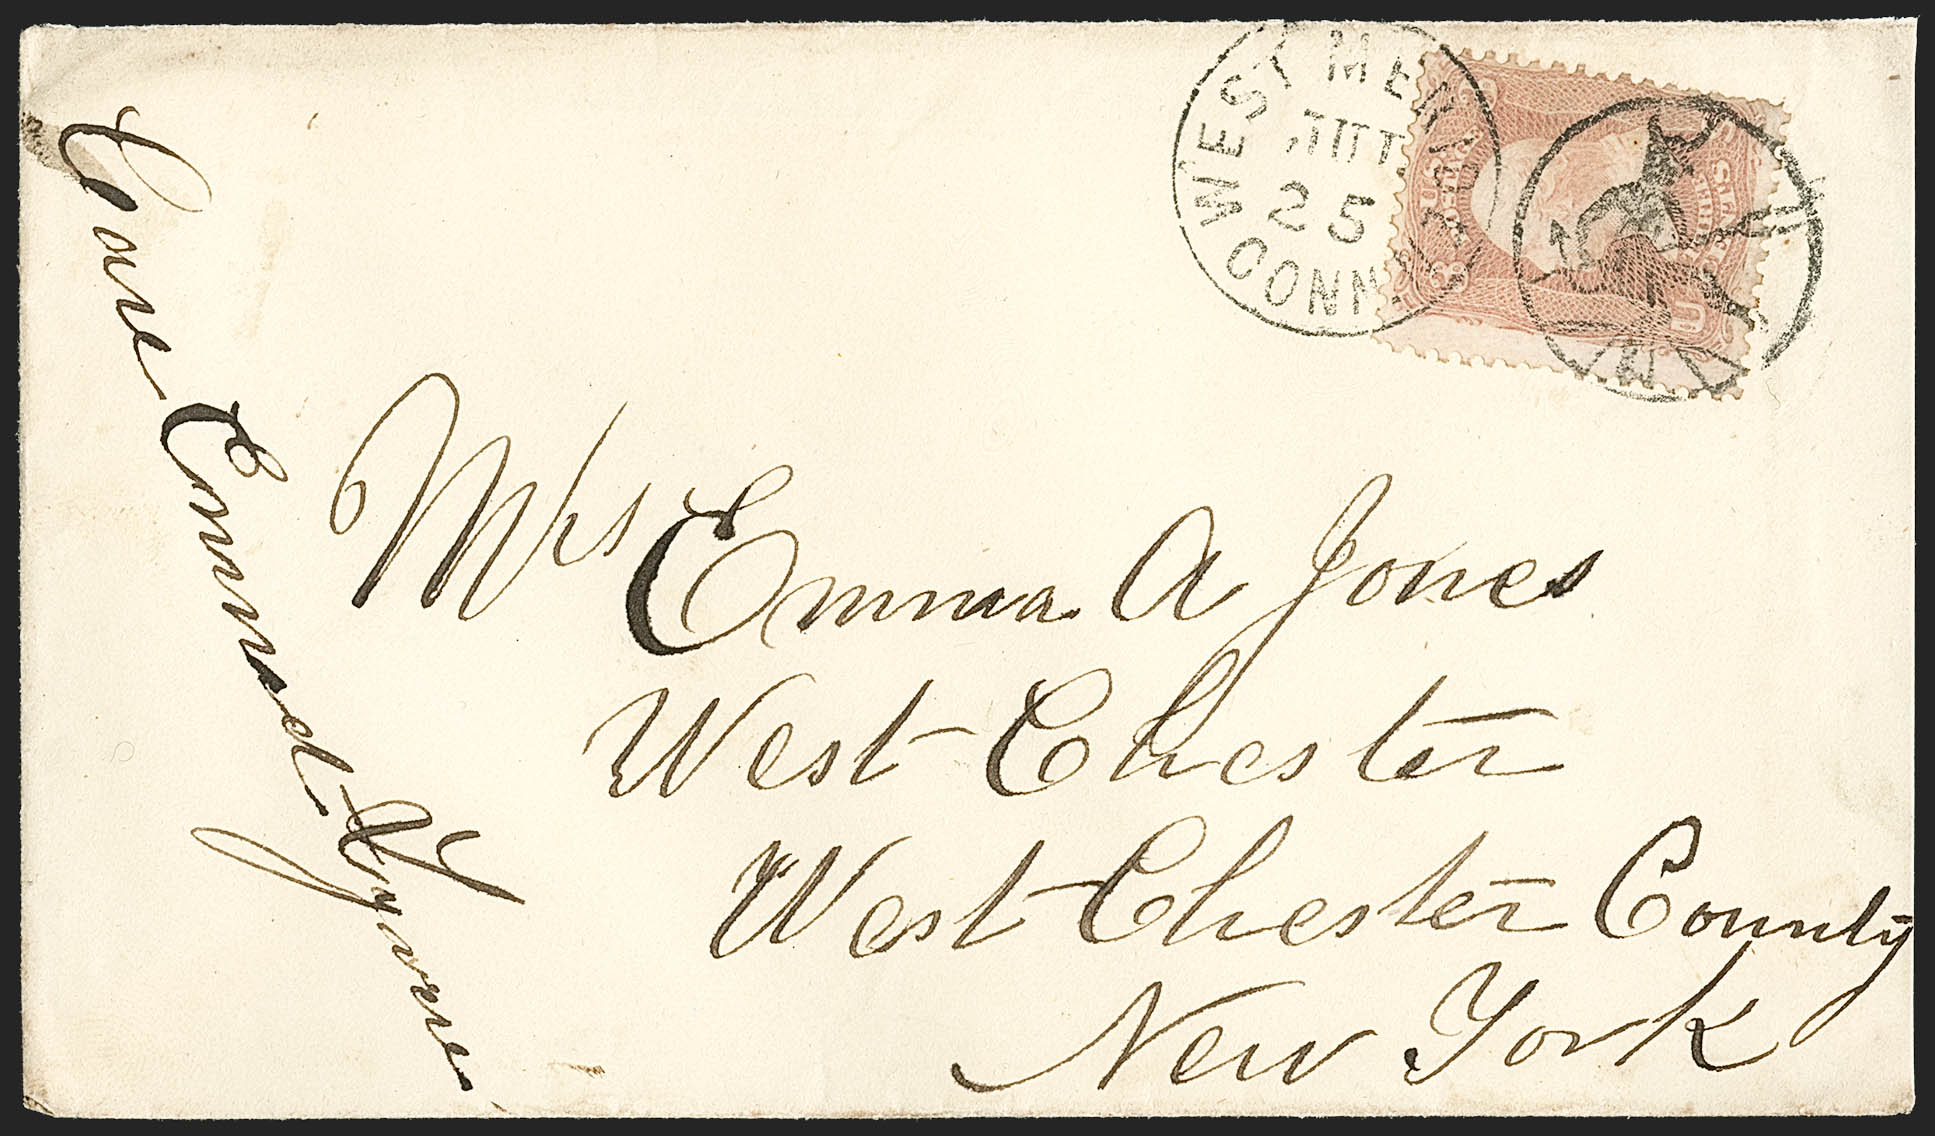 WEST MERIDEN
JUL
25
CONN.
Care Edmund Hyners
Mrs Emma A Jones
West Chester
West Chester County
New York